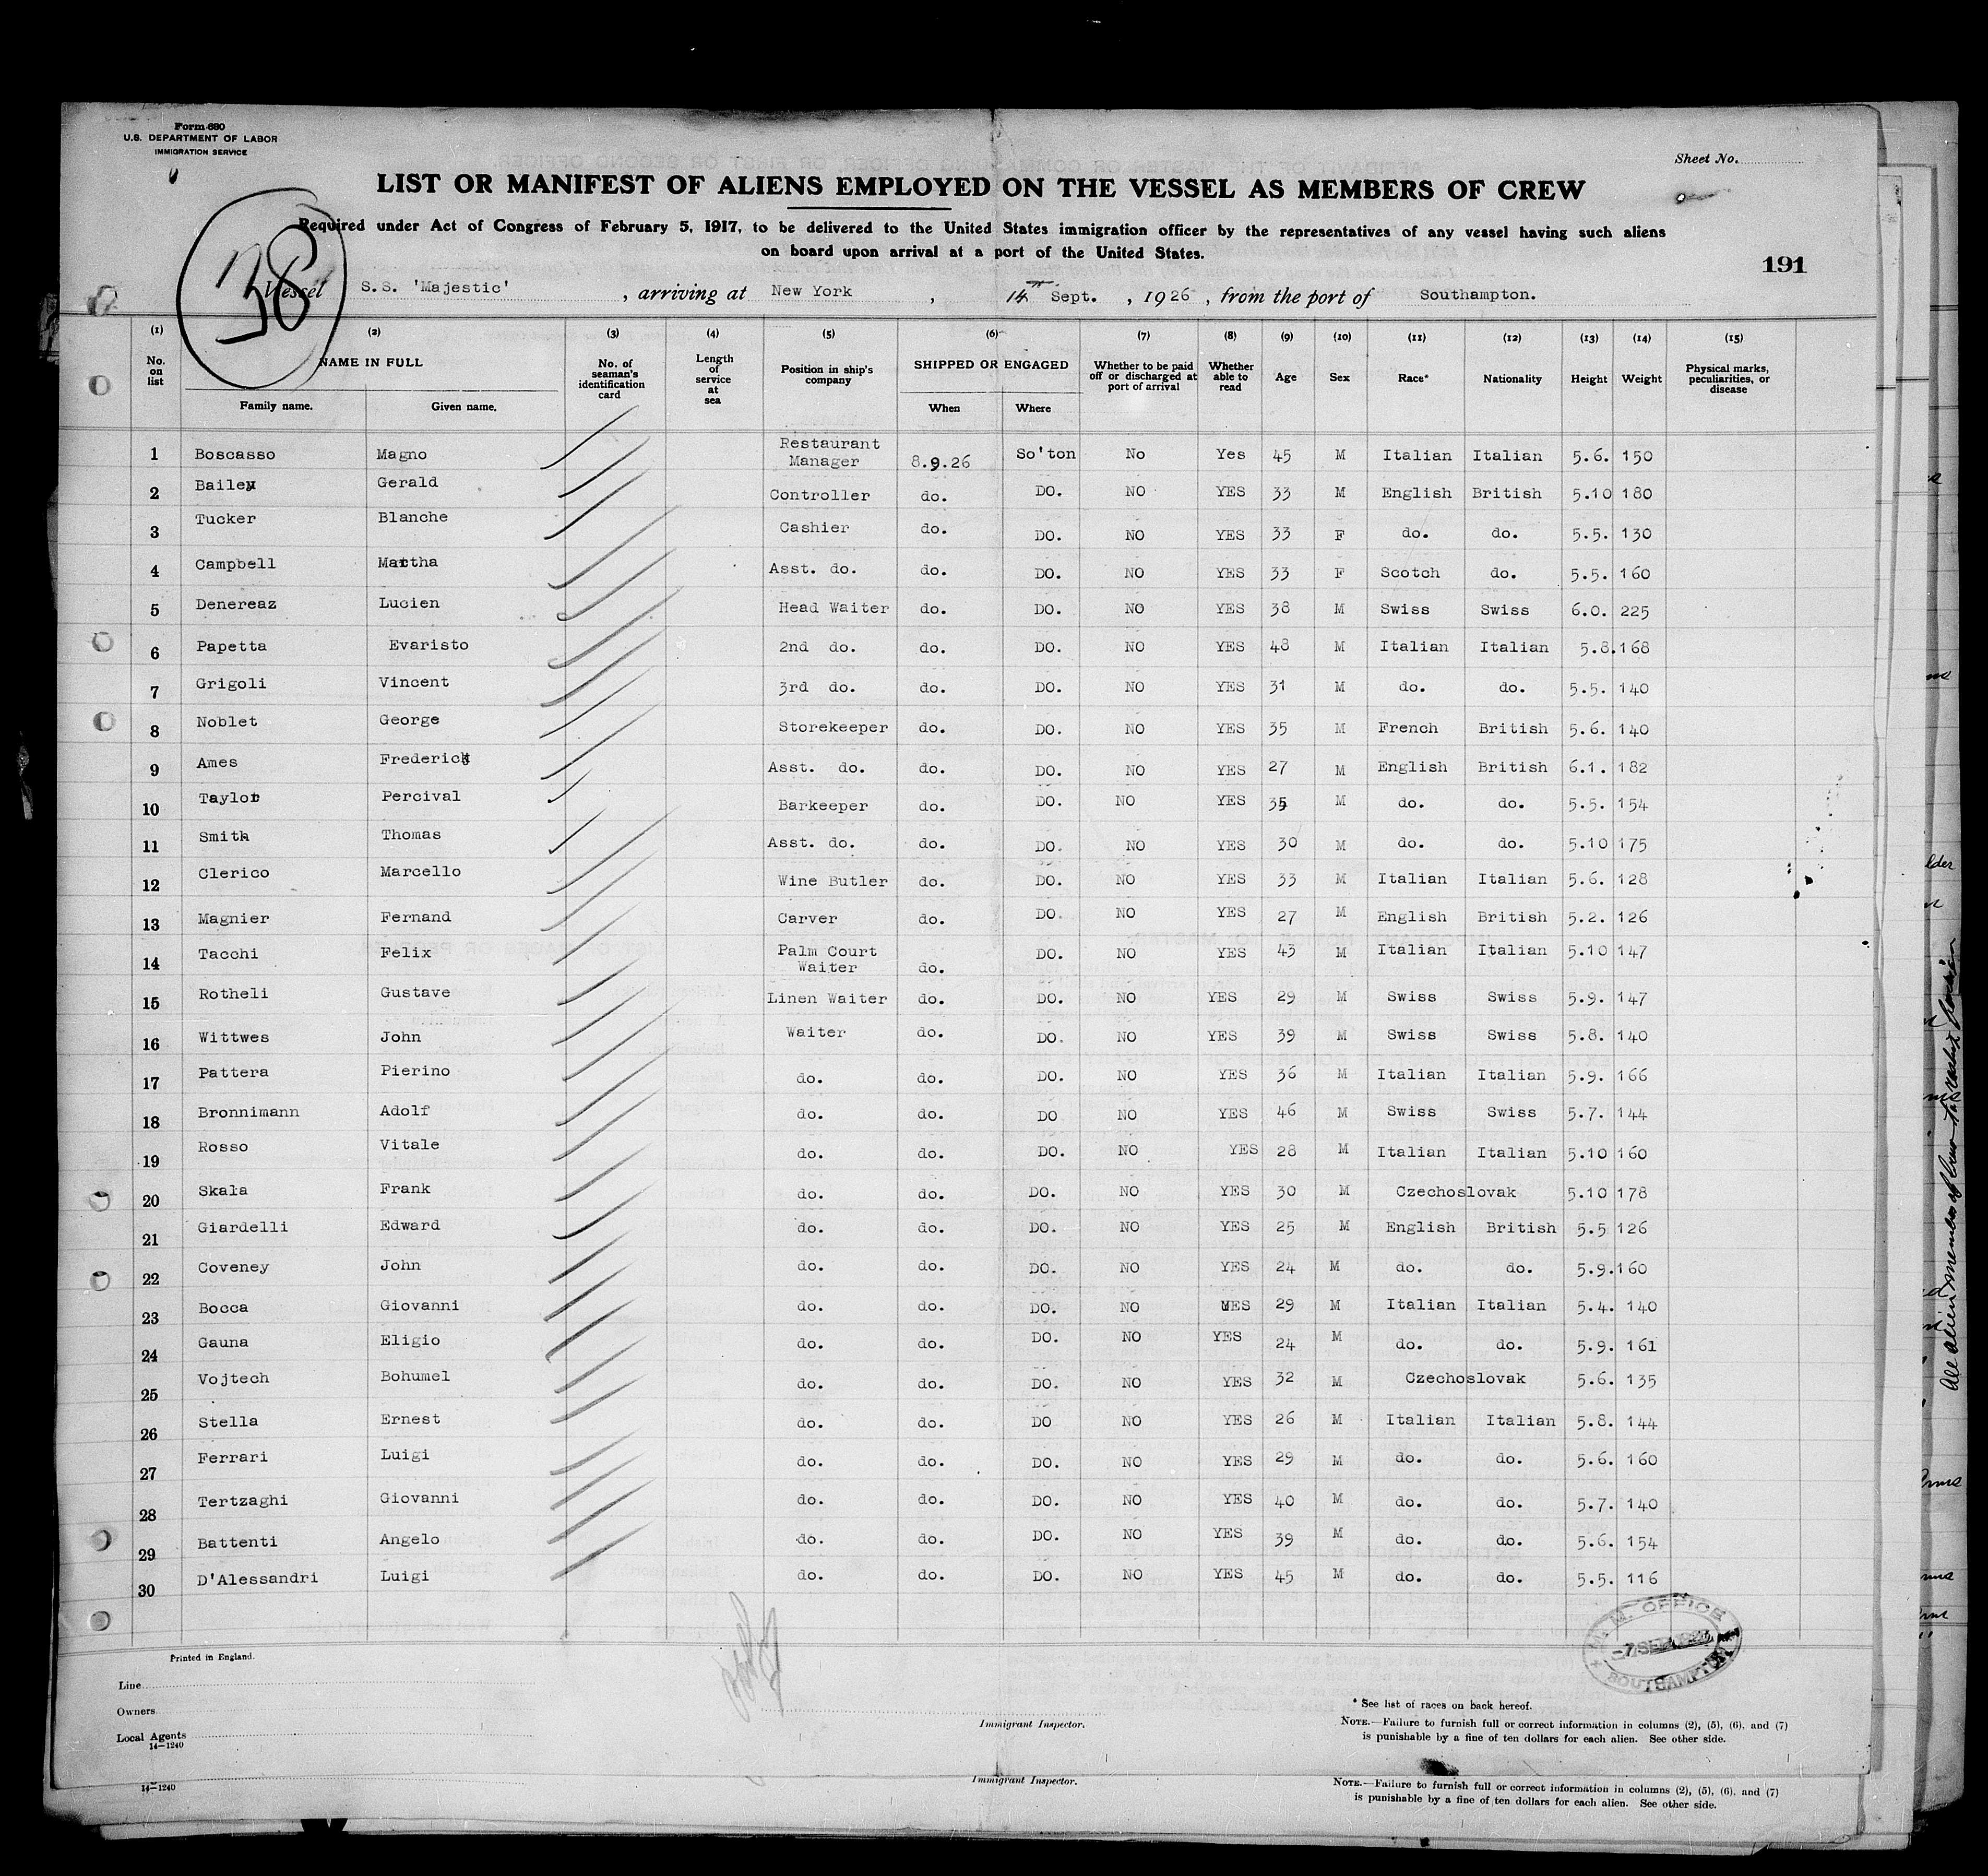 Form 680
U.S. DEPARTMENT OF LABOR
IMMIGRATION SERVICE
Sheet No.
LIST OR MANIFEST OF ALIENS EMPLOYED ON THE VESSEL AS MEMBERS OF CREW
Required under Act of Congress of February 5, 1917, to be delivered to the United States immigration officer by the representatives of any vessel having such aliens
on board upon arrival at a port of the United States.
191
38
Vessel S.S. 'Majestic', arriving at New York, 14 Sept., 1926, from the port of Southampton.
(1) (2) (3) (4) (5) (6) (7) (8) (9) (10) (11) (12) (13) (14) (15)
No. on list NAME IN FULL No. of seaman's identification card Length of service at sea Position in ship's company SHIPPED OR ENGAGED Whether to be paid off or discharged at port of arrival Whether able to read Age Sex Race* Nationality Height Weight Physical marks, peculiarities, or disease
Family name. Given name. When Where
1 Boscasso Magno Restaurant Manager 8.9.26 So'ton No Yes 45 M Italian Italian 5.6. 150
2 Bailey Gerald Controller do. DO. NO YES 33 M English British 5.10 180
3 Tucker Blanche Cashier do. DO. NO YES 33 F do. do. 5.5. 130
4 Campbell Martha Asst. do. do. DO. NO YES 33 F Scotch do. 5.5. 160
5 Denereaz Lucien Head Waiter do. DO. NO YES 38 M Swiss Swiss 6.0. 225
6 Papetta Evaristo 2nd do. do. DO. NO YES 48 M Italian Italian 5.8. 168
7 Grigoli Vincent 3rd do. do. DO. NO YES 31 M do. do. 5.5. 140
8 Noblet George Storekeeper do. DO. NO YES 35 M French British 5.6. 140
9 Ames Frederick Asst. do. do. DO. NO YES 27 M English British 6.1. 182
10 Taylor Percival Barkeeper do. DO. NO YES 35 M do. do. 5.5. 154
11 Smith Thomas Asst. do. do. DO. NO YES 30 M do. do. 5.10 175
12 Clerico Marcello Wine Butler do. DO. NO YES 33 M Italian Italian 5.6. 128
13 Magnier Fernand Carver do. DO. NO YES 27 M English British 5.2. 126
14 Tacchi Felix Palm Court Waiter do. DO. NO YES 43 M Italian Italian 5.10 147
15 Rotheli Gustave Linen Waiter do. DO. NO YES 29 M Swiss Swiss 5.9. 147
16 Wittwes John Waiter do. DO. NO YES 39 M Swiss Swiss 5.8. 140
17 Pattera Pierino do. do. DO. NO YES 36 M Italian Italian 5.9. 166
18 Bronnimann Adolf do. do. DO NO YES 46 M Swiss Swiss 5.7. 144
19 Rosso Vitale do. do. DO. NO YES 28 M Italian Italian 5.10 160
20 Skala Frank do. do. DO. NO YES 30 M Czechoslovak 5.10 178
21 Giardelli Edward do. do. DO. NO YES 25 M English British 5.5 126
22 Coveney John do. do. DO. NO YES 24 M do. do. 5.9. 160
23 Bocca Giovanni do. do. DO. NO YES 29 M Italian Italian 5.4. 140
24 Gauna Eligio do. do. DO. NO YES 24 M do. do. 5.9. 161
25 Vojtech Bohumel do. do. DO. NO YES 32 M Czechoslovak 5.6. 135
26 Stella Ernest do. do. DO NO YES 26 M Italian Italian 5.8. 144
27 Ferrari Luigi do. do. DO. NO YES 29 M do. do. 5.6. 160
28 Tertzaghi Giovanni do. do. DO. NO YES 40 M do. do. 5.7. 140
29 Battenti Angelo do. do. DO. NO YES 39 M do. do. 5.6. 154
30 D'Alessandri Luigi do. do. DO. NO YES 45 M do. do. 5.5. 116
M. OFFICE
SOUTHAMPTON
Printed in England.
Line
Owners
Local Agents
14—1240
Immigrant Inspector.
* See list of races on back hereof.
NOTE.—Failure to furnish full or correct information in columns (2), (5), (6), and (7)
is punishable by a fine of ten dollars for each alien. See other side.
14—1240
Immigrant Inspector.
NOTE.—Failure to furnish full or correct information in columns (2), (5), (6), and (7)
is punishable by a fine of ten dollars for each alien. See other side.